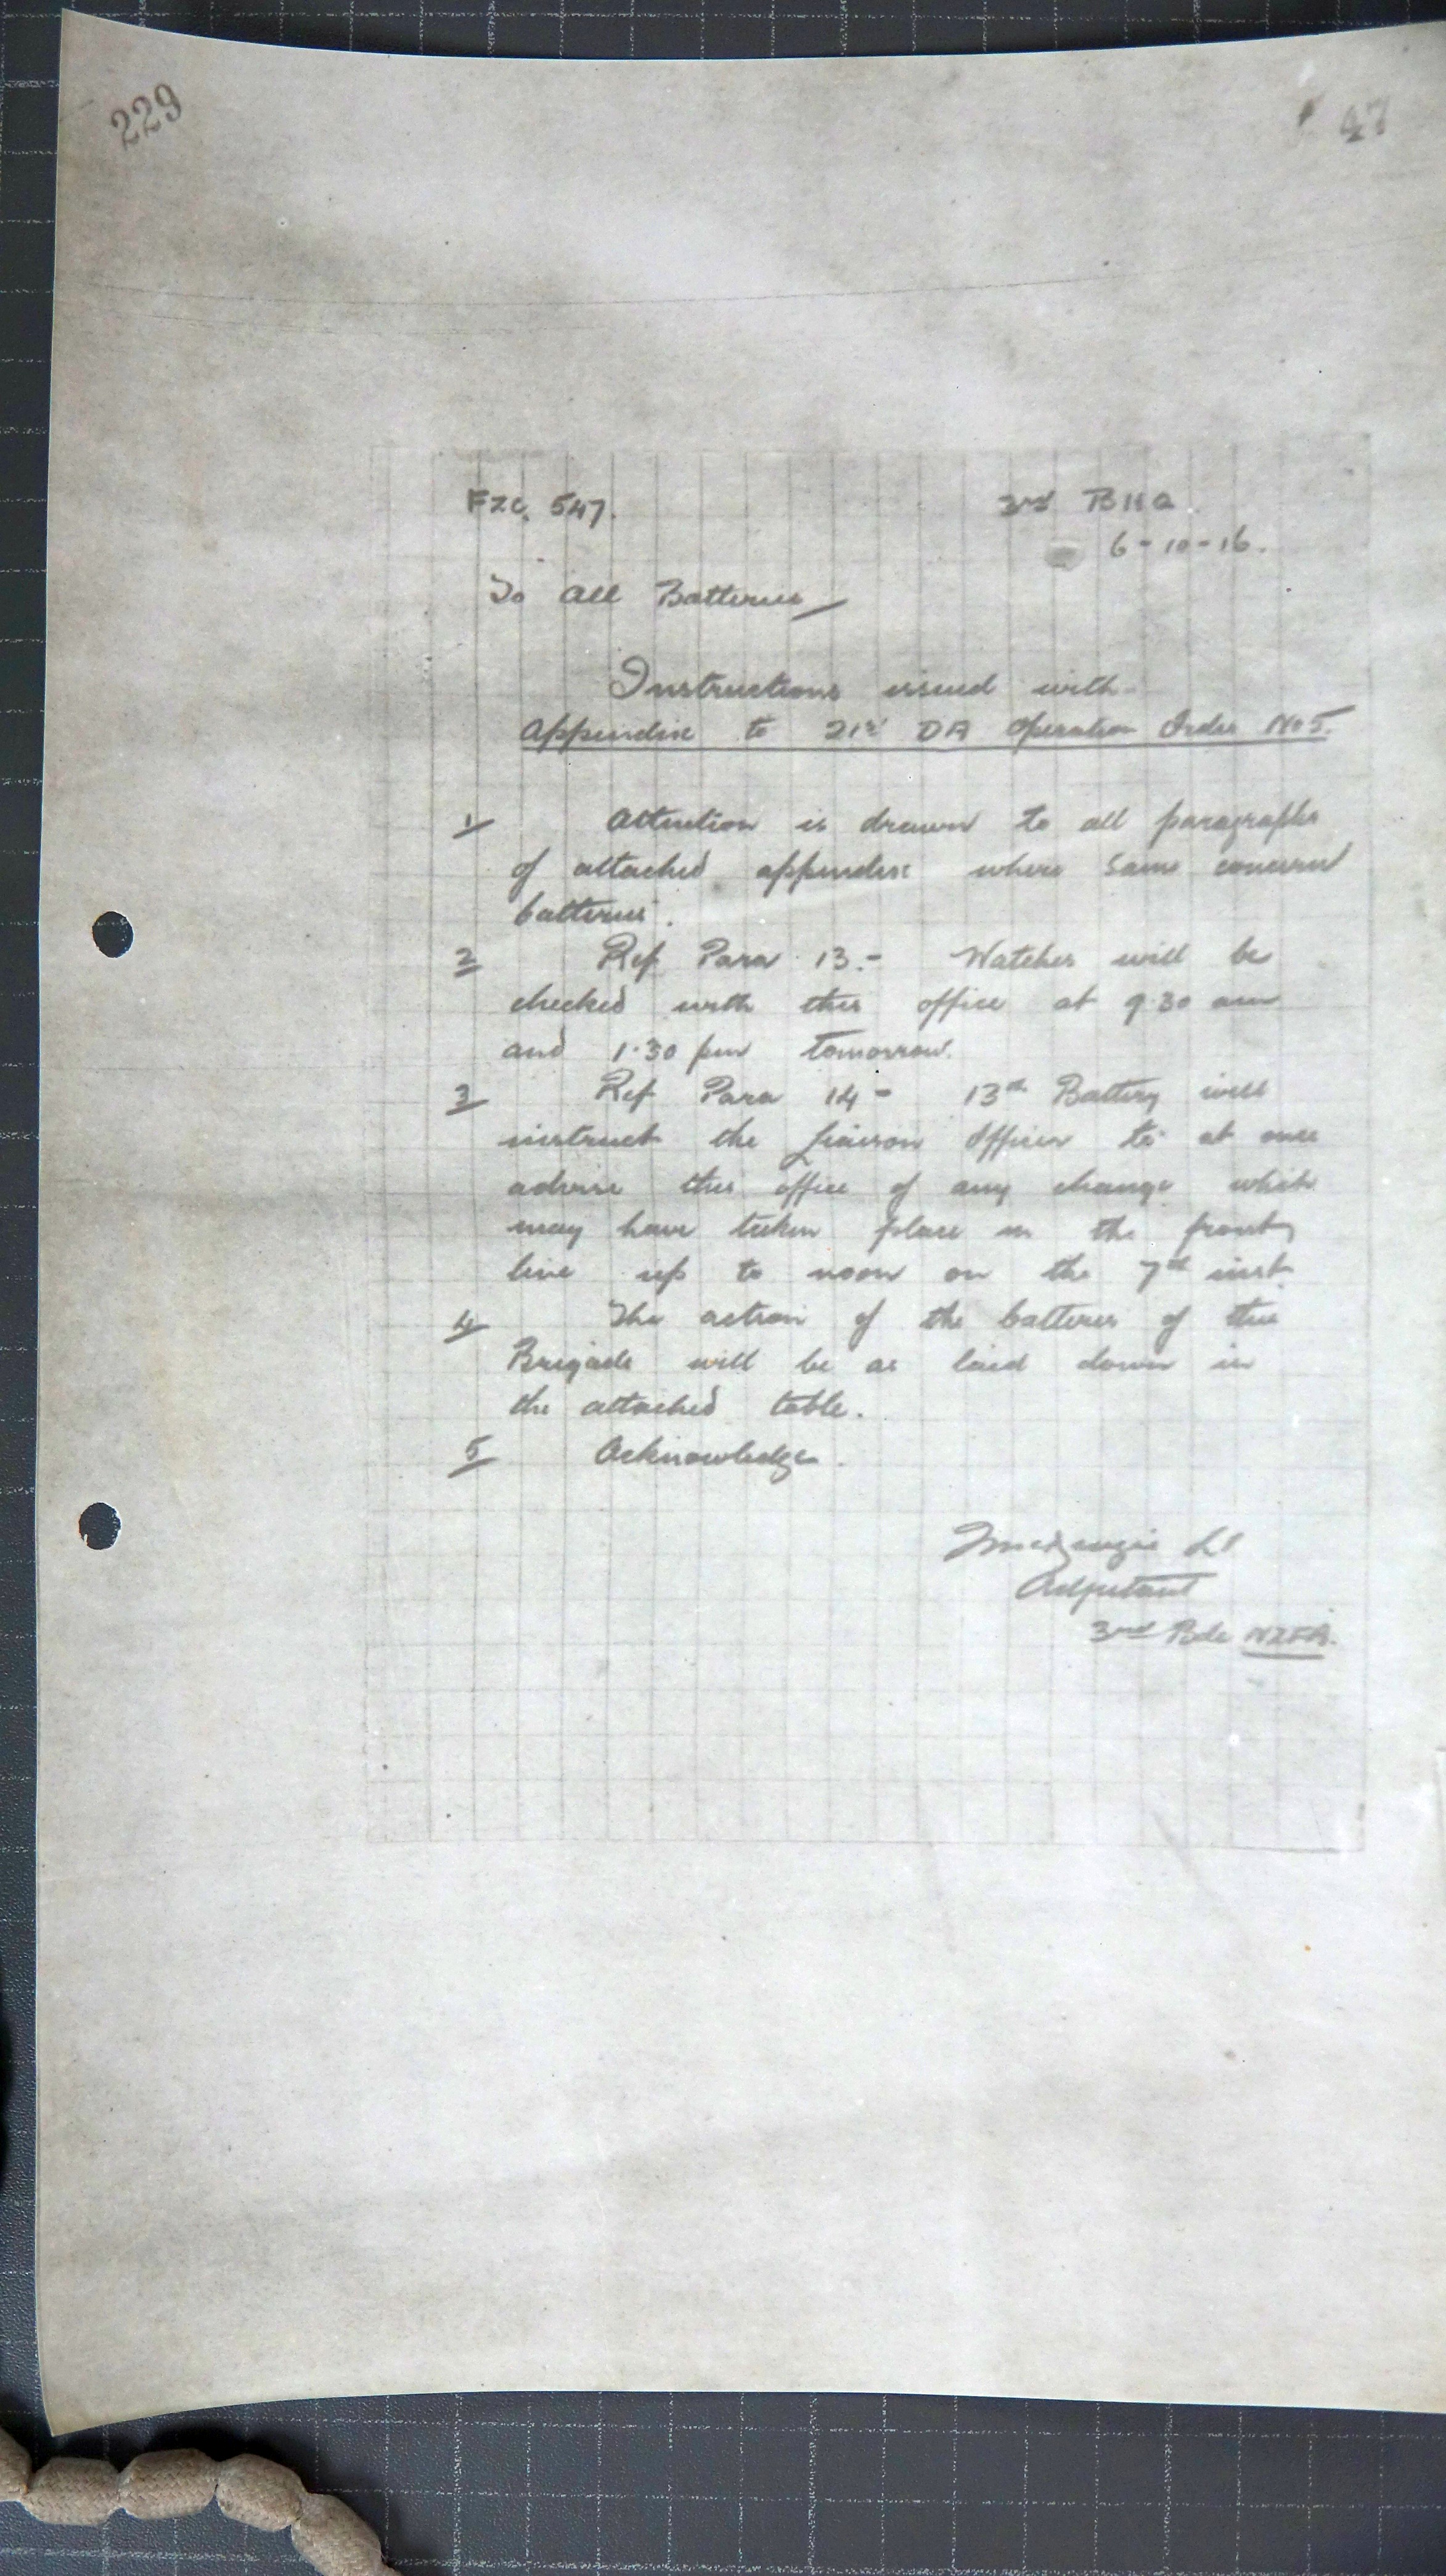 229
47
FZC. 547.
3rd BHQ
6-10-16.
To all Batteries
Instructions issued with
Appendix to 21st DA Operation Order No 5.
1 Attention is drawn to all paragraphs
of attached appendix where same concern
batteries.
2 Ref Para 13.- Watches will be
checked with this office at 9.30 am
and 1.30 pm tomorrow.
3 Ref Para 14 - 13th Battery will
instruct the Liaison Officer to at once
advise this office of any change which
may have taken place in the front
line up to noon on the 7th inst
4 The action of the batteries of this
Brigade will be as laid down in
the attached table.
5 Acknowledge.
Lt
Adjutant
3rd Bde NZFA.